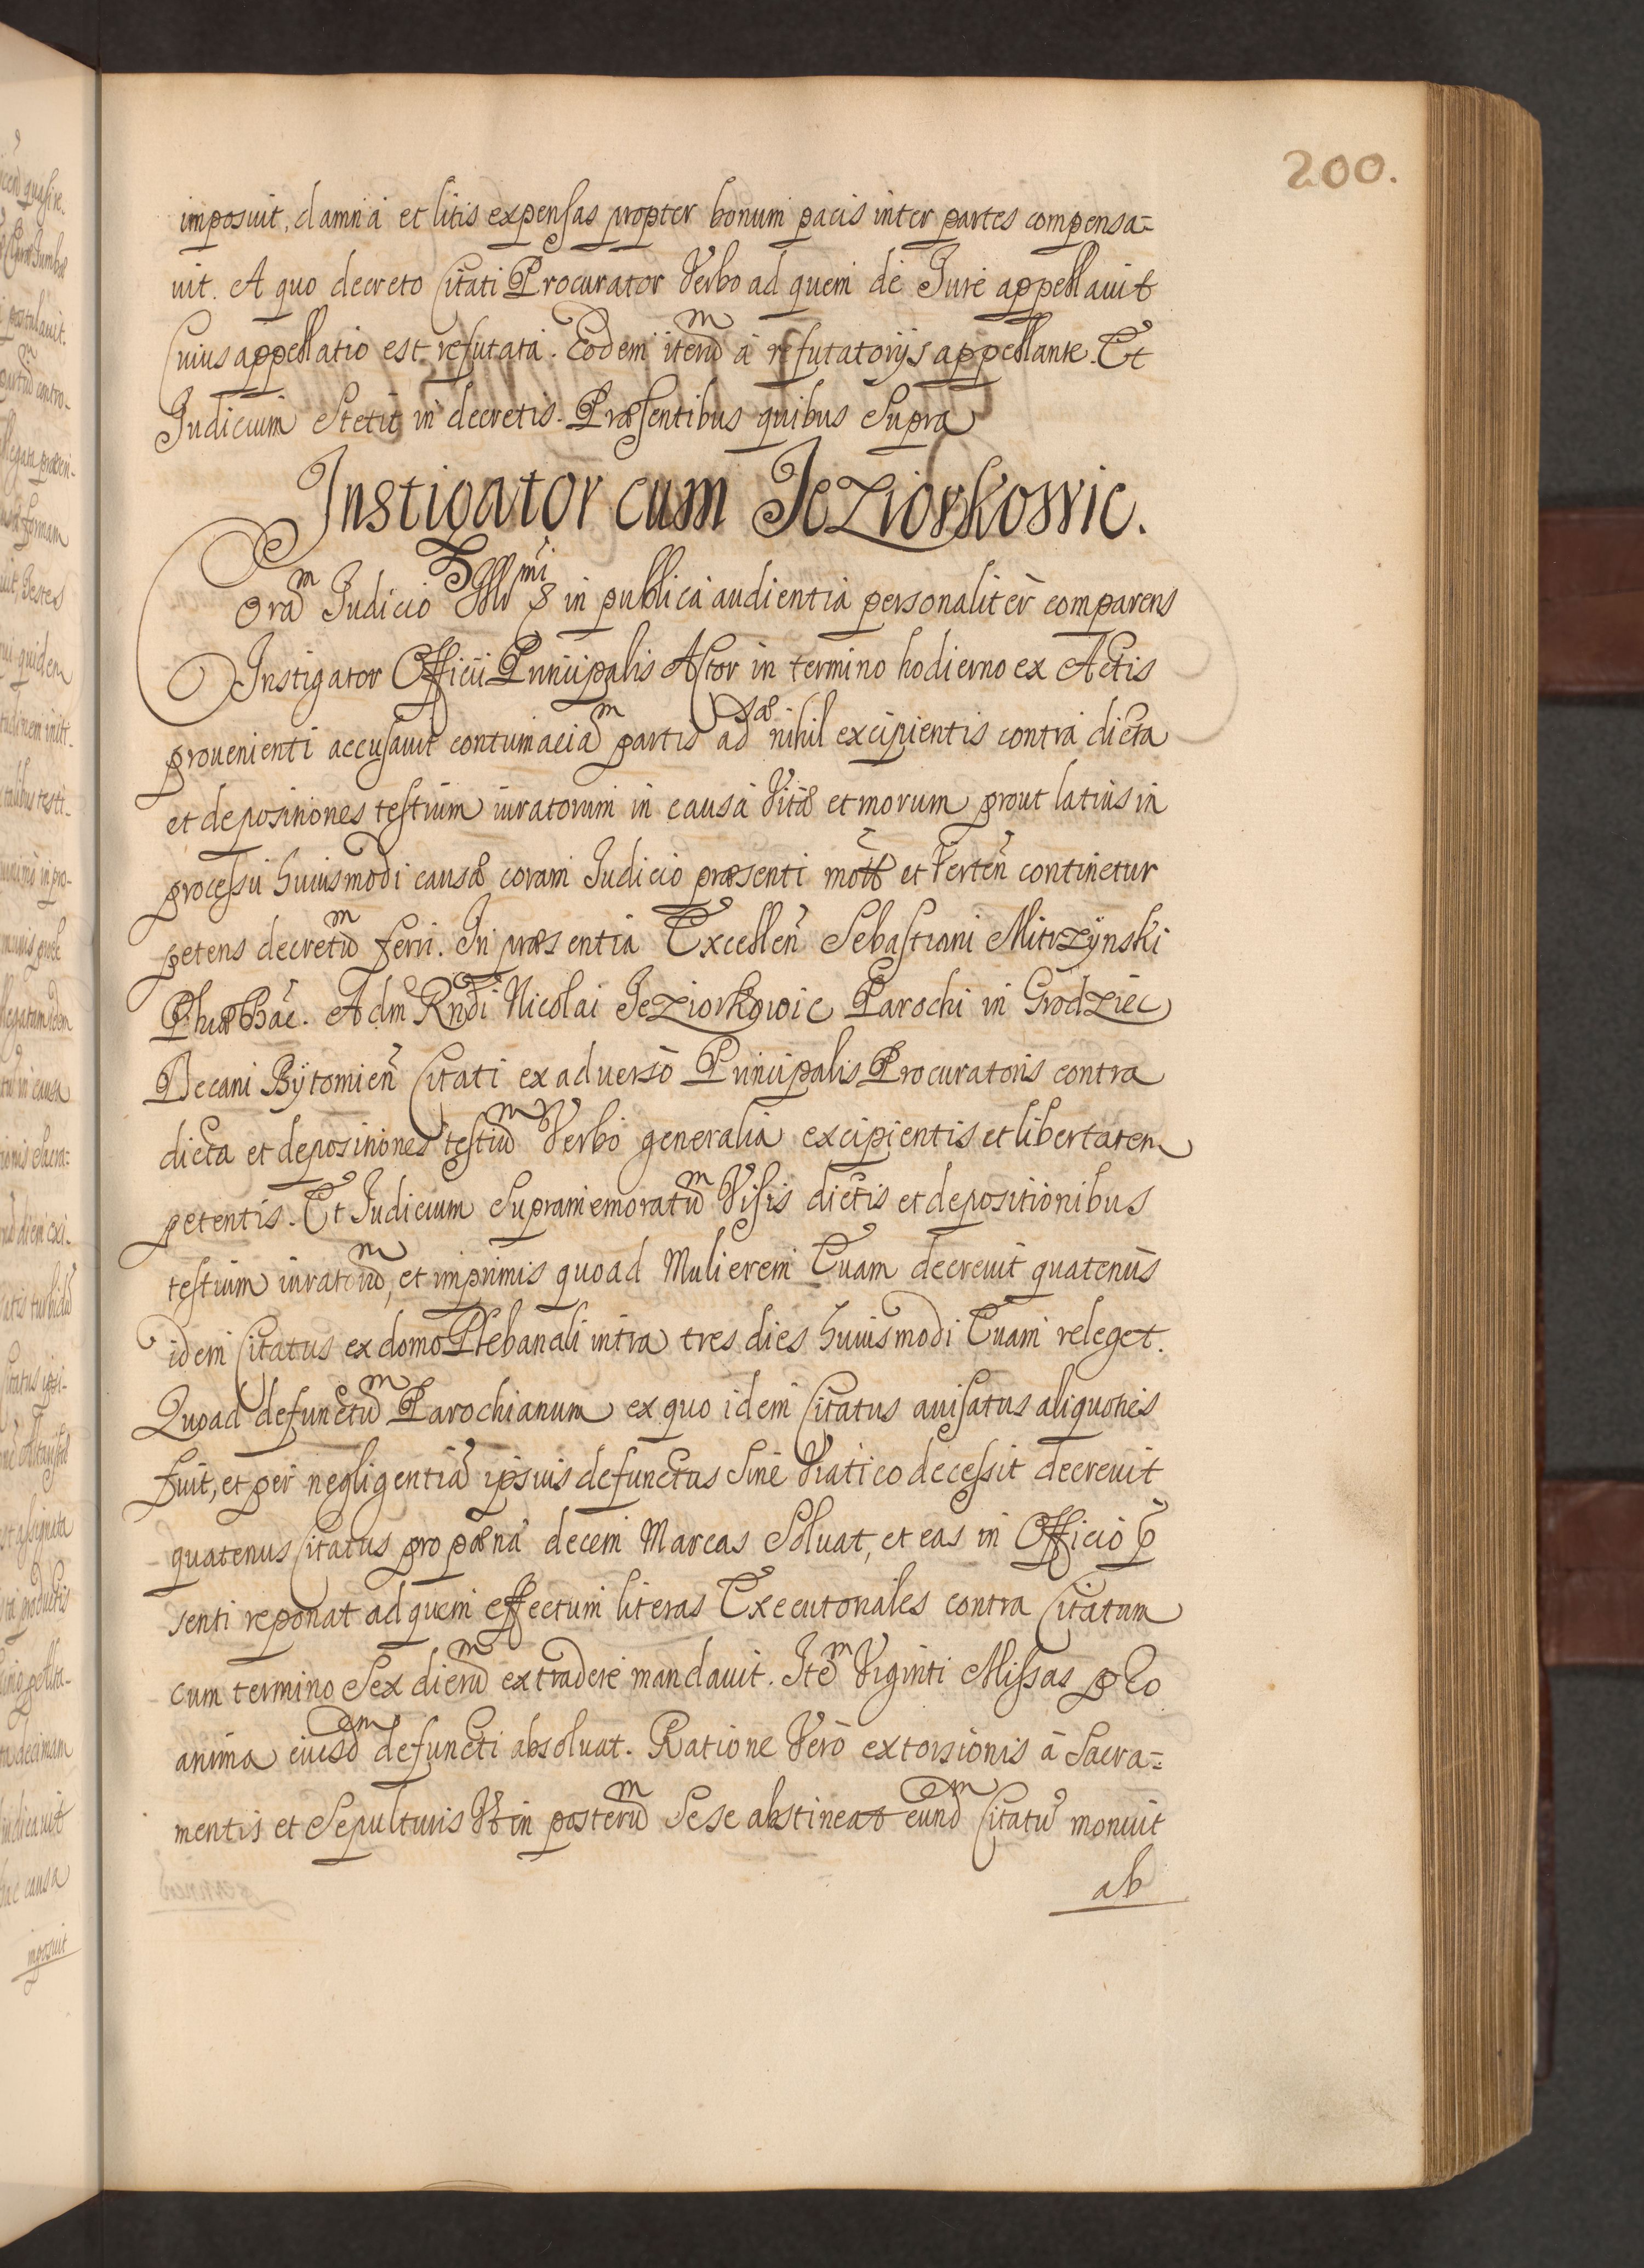 200.
imposuit, damna et litis expensas propter bonum pacis inter partes compensa=
uit. A quo decreto Citati Procurator Verbo ad quem de Jure appellauit
Cuius appellatio est refutata. Eodem iterũ m à refutatorijs appellante. Et
Judicium Stetit in decretis. Præsentibus quibus Supra
Instigator cum Jeziorkowic.
Corã m Judicio Illr̃ mi in publica audientia personalitèr comparens
Instigator Officii Principalis Actor in termino hodierno ex Actis
prouenienti accusauit contumaciã m partis aduersæ nihil excipientis contra dicta
et depositiones testium iuratorum in causa Vitæ et morum prout latius in
processu huiusmodi causæ coram Judicio præsenti mott̃ et Verteñ continetur
petens decretũ m ferri. In præsentia Excelleñ Sebastiani Mitrzynski
Phiæ Bac̃. Adm Rñdi Nicolai Jeziorkowic Parochi in Grodziec
Decani Bytomień Citati ex aduerso Principalis Procuratoris contra
dicta et depositiones testiũ m Verbo generalia excipientis et libertatem
petentis. Et Judicium Supramemoratũ m Visis dictis et depositionibus
testium iuratorũ m, et imprimis quoad Mulierem Euam decreuit quatenus
idem Citatus ex domo Plebanali intra tres dies huiusmodi Euam releget.
Quoad defunctũ m Parochianum ex quo idem Citatus auisatus aliquoties
fuit, et per negligentiã ipsius defunctus Sine Viatico decessit decreuit
quatenus Citatus pro pæna decem Marcas Soluat, et eas in Officio p̃
senti reponat ad quem effectum literas Executoriales contra Citatum
cum termino Sex dierũ m extradere mandauit. Itẽ m Viginti Missas pro
anima eiusd em defuncti absoluat. Ratione Verò extorsionis à Sacra=
mentis et Sepulturis Vt in posterũ m Sese abstineat eund em Citatũ monuit
ab